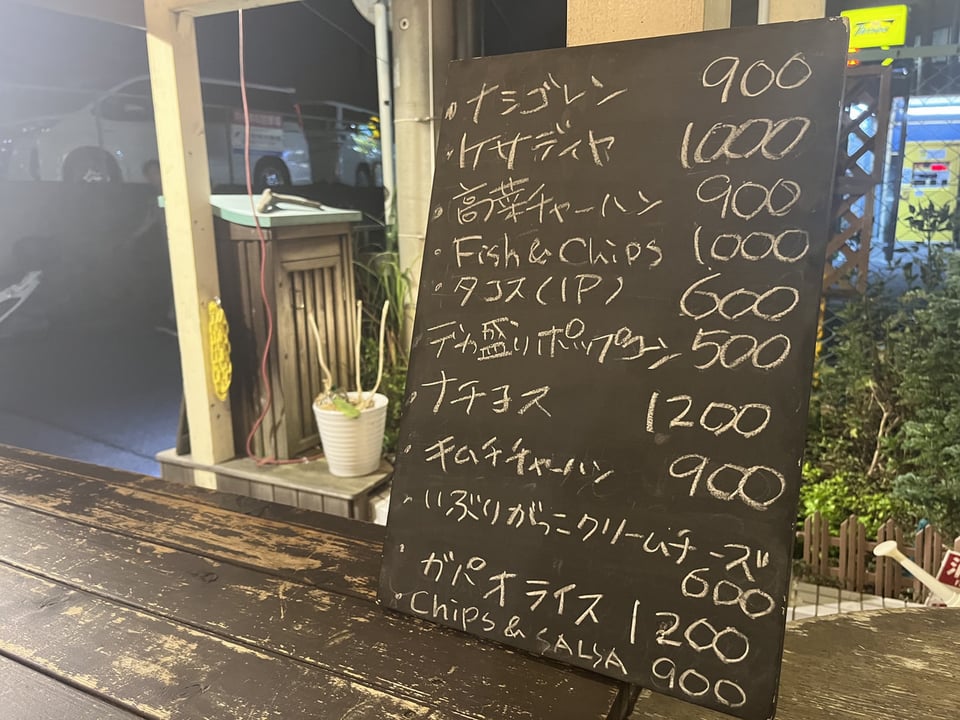 ・ナシゴレン 900
・ケサディヤ 1000
・高菜チャーハン 900
・Fish & Chips 1000
・タコス(1P) 600
デカ盛りポップコーン 500
・ナチョス 1200
・キムチチャーハン 900
・いぶりがっこクリームチーズ
600
・ガパオライス 1200
・Chips & SALSA 900